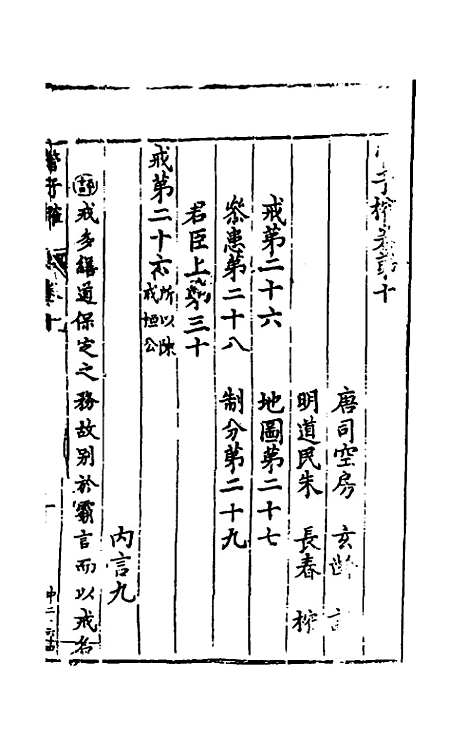 子榷卷第十
唐司空房 玄齡
明道民朱 長春 榷
戒第二十六 地圖第二十七
參患第二十八 制分第二十九
君臣上第三十
戒第二十六 所以陳戒桓公
內言九
評戒多錯道保定之務故別於霸言而以戒名
管子榷 卷十